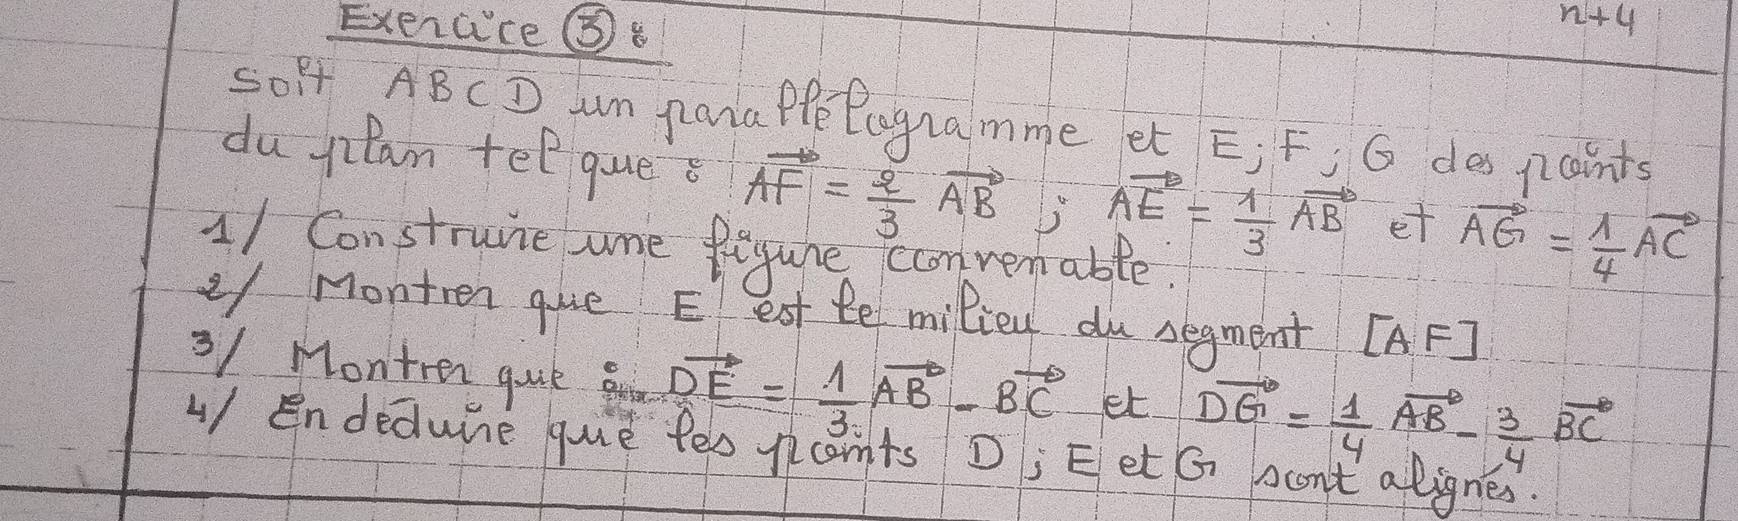 n+4
Exercice ③ :
Soit ABCD un parallélogramme et E; F; G des points
du plan tel que : $\overrightarrow{AF} = \frac{2}{3} \overrightarrow{AB}$ ; $\overrightarrow{AE} = \frac{1}{3} \overrightarrow{AB}$ et $\overrightarrow{AG} = \frac{1}{4} \overrightarrow{AC}$
1/ Construire une figure convenable.
2/ Montrer que E est le milieu du segment [AF]
3/ Montrer que : $\overrightarrow{DE} = \frac{1}{3} \overrightarrow{AB} - \overrightarrow{BC}$ et $\overrightarrow{DG} = \frac{1}{4} \overrightarrow{AB} - \frac{3}{4} \overrightarrow{BC}$
4/ En déduire que les points D; E et G sont alignés.